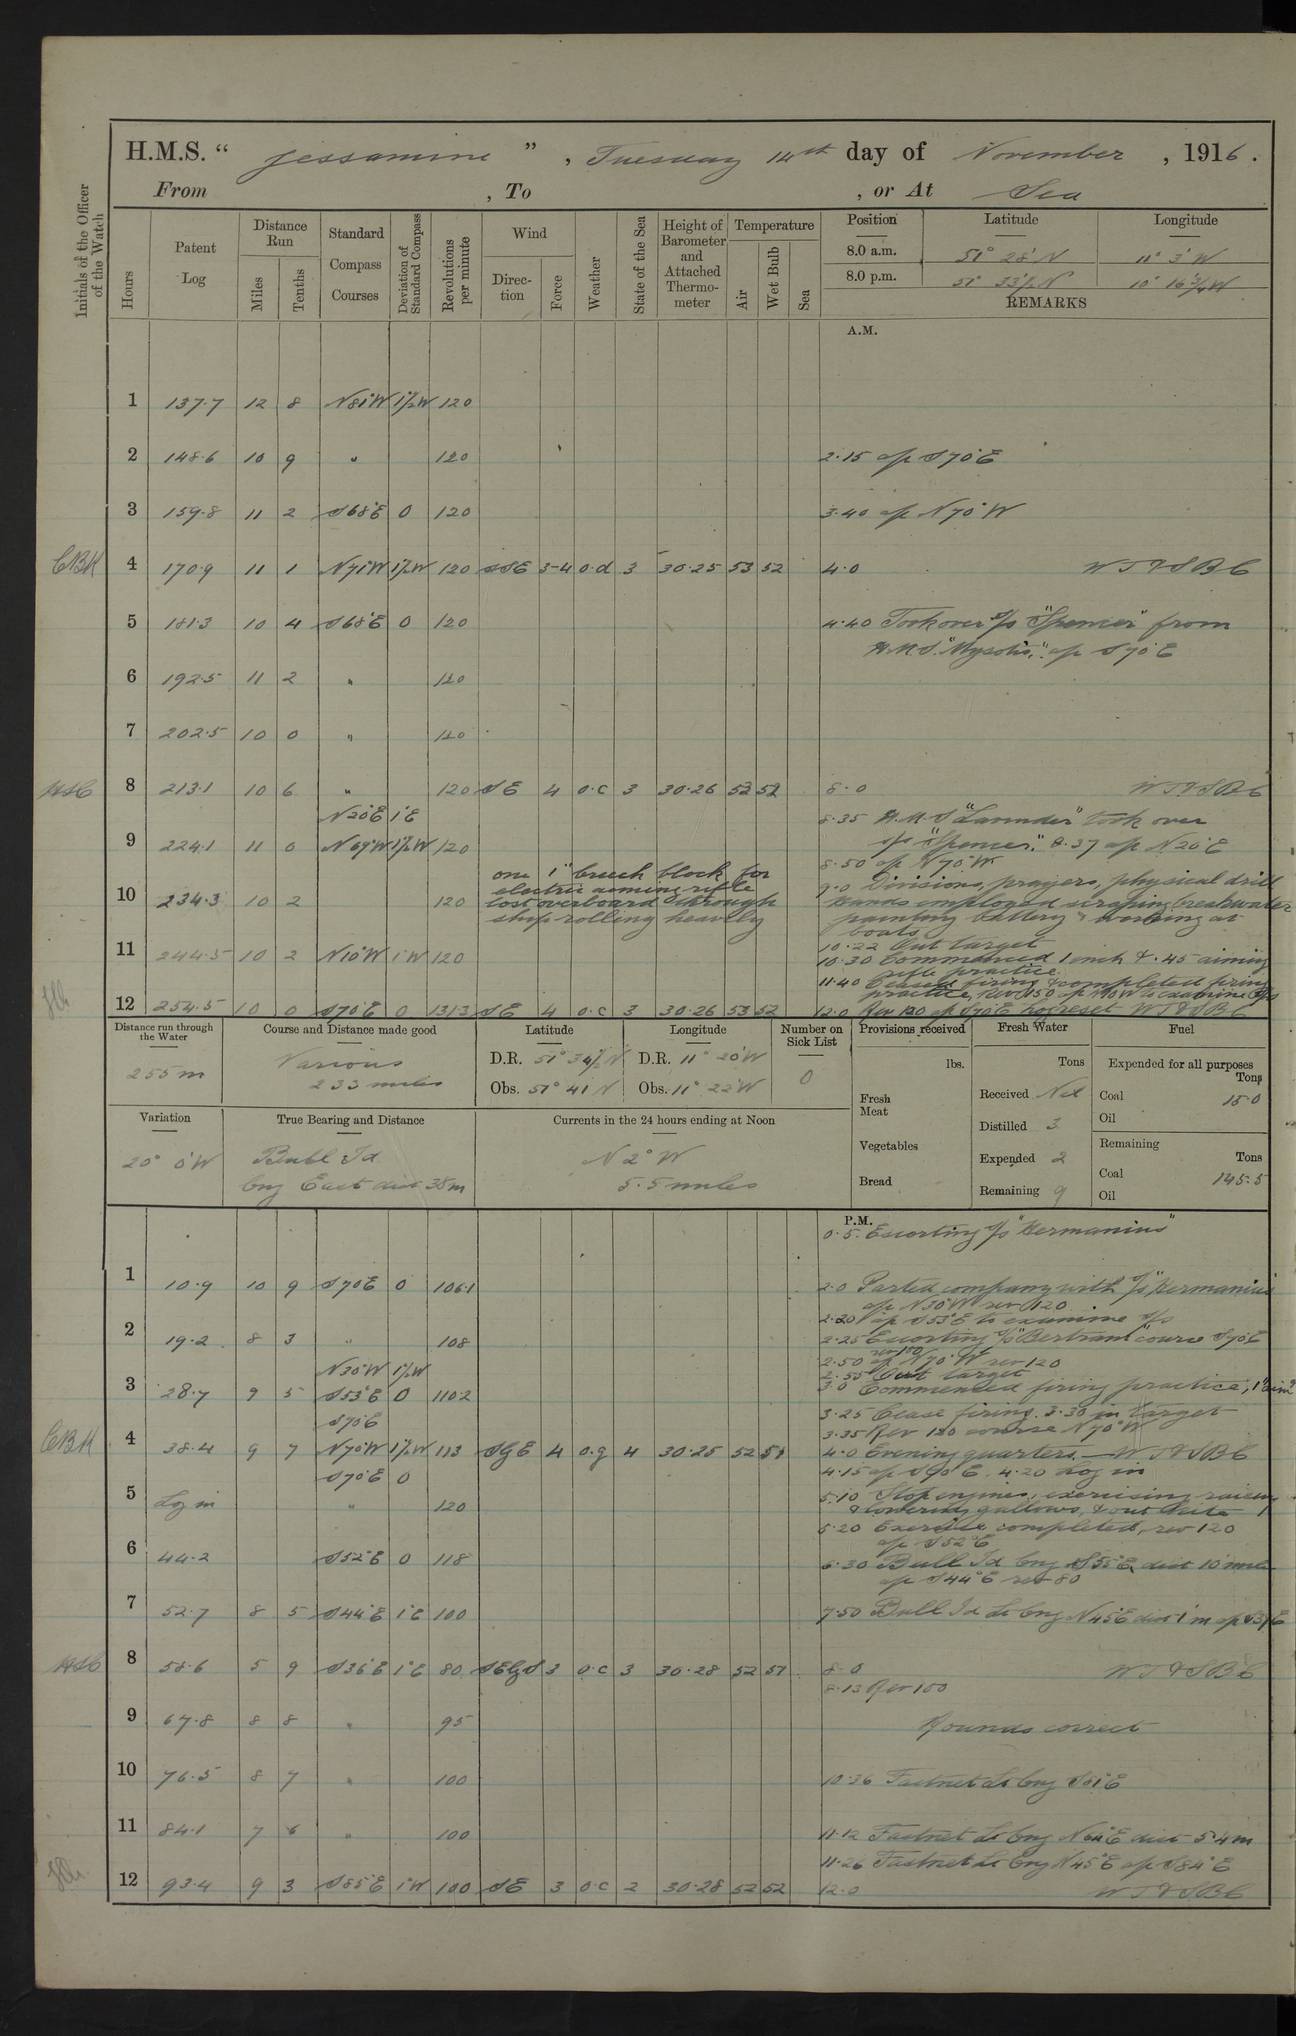 H.M.S. “ Jessamine ” , Tuesday 14th day of November , 1916 .
From , To , or At Sea
Initials of the Officer of the Watch
Hours Patent Log Distance Run Miles Tenths Standard Compass Courses Deviation of Standard Compass Revolutions per minute Wind Direction Force Weather State of the Sea Height of Barometer and Attached Thermometer Temperature Air Wet Bulb Sea Position Latitude Longitude
8.0 a.m. 51° 28' N 11° 3' W
8.0 p.m. 51° 33½ N 10° 16¾ W
REMARKS
A.M.
1 137.7 12 8 N81°W 1½W 120
2 148.6 10 9 " 120 2.15 a/c S70°E
3 159.8 11 2 S68°E 0 120 3.40 a/c N70°W
CBH 4 170.9 11 1 N71°W 1½W 120 SSE 3-4 o.d 3 30.25 53 52 4.0 W T & S B C
5 181.3 10 4 S68°E 0 120 4.40 Took over S/S "Spencer" from
H.M.S. "Mysotis," a/c S70°E
6 192.5 11 2 " 120
7 202.5 10 0 " 120
8 213.1 10 6 " 120 SE 4 o.c 3 30.26 53 52 8.0 W T & S B C
N20°E 1°E
8.35 H.M.S "Lavender" took over
9 224.1 11 0 N69°W 1½W 120 S/S "Spencer". 8.37 a/c N20°E
8.50 a/c N70°W
one 1" breech block for
electric aiming rifle
lost overboard through
ship rolling heavily
10 234.3 10 2 120 9.0 Divisions, prayers, physical drill
Hands employed scraping breakwater
painting battery & working at
boats
10.22 Out target
11 244.5 10 2 N10°W 1°W 120 10.30 Commenced 1 inch & .45 aiming
rifle practice
11.40 Ceased firing & completed firing
practice, Rev 150 a/c N10°W to examine S/S
12 254.5 10 0 S70°E 0 131.3 SE 4 o.c 3 30.26 53 52 12.0 Rev 120 a/c S70°E log reset W T & S B C
Distance run through the Water
255 m
Course and Distance made good
Various
233 miles
Latitude Longitude
D.R. 51° 34½ N D.R. 11° 20' W
Obs. 51° 41 N Obs. 11° 22' W
Number on Sick List
0
Provisions received
lbs.
Fresh Meat
Vegetables
Bread
Fresh Water
Tons
Received Nil
Distilled 3
Expended 2
Remaining 9
Fuel
Expended for all purposes
Tons
Coal 15.0
Oil
Remaining
Tons
Coal 145.5
Oil
Variation
20° 0' W
True Bearing and Distance
Bull Id
brg East dist 38 m
Currents in the 24 hours ending at Noon
N 2° W
5.5 miles
P.M.
0.5. Escorting S/S "Hermanius"
1 10.9 10 9 S70E 0 106.1 2.0 Parted company with S/S "Hermanius"
a/c N30°W rev 120
2.20 a/c S53°E to examine S/S
2 19.2 8 3 " 108 2.25 Escorting S/S "Bertram" course S70°E
rev 100
N30°W 1½W 2.50 a/c N70°W rev 120
2.55 Out target
3 28.7 9 5 S53°E 0 110.2 3.0 Commenced firing practice, 1"
S70°E 3.25 Cease firing. 3.30 in target
3.35 Rev 120 course N70°W
CBH 4 38.4 9 7 N70°W 1½W 113 4 o.g 4 30.25 52 51 4.0 Evening quarters. W T & S B C
S70°E 0 4.15 a/c S70°E. 4.20 Log in
5 Log in " 120 5.10 Stop engines, exercising raising
& lowering gallows, & out kite
5.20 Exercise completed, rev 120
a/c S52°E
6 44.2 S52°E 0 118 6.30 Bull Id brg S55°E, dist 10 miles
a/c S44°E rev 80
7 52.7 8 5 S44°E 1°E 100 7.50 Bull Id Lt brg N45°E dist 1 m
8 58.6 5 9 S36°E 1°E 80 SEbS 3 o.c 3 30.28 52 51 8.0 W T & S B C
8.13 Rev 100
9 67.8 8 8 " 95 Rounds correct
10 76.5 8 7 " 100 10.36 Fastnet Lt brg S81°E
11 84.1 7 6 " 100 11.12 Fastnet Lt brg N64°E dist 5.4 m
11.26 Fastnet Lt brg N45°E a/c S84°E
12 93.4 9 3 S85°E 1°W 100 SE 3 o.c 2 30.28 52 52 12.0 W T & S B C